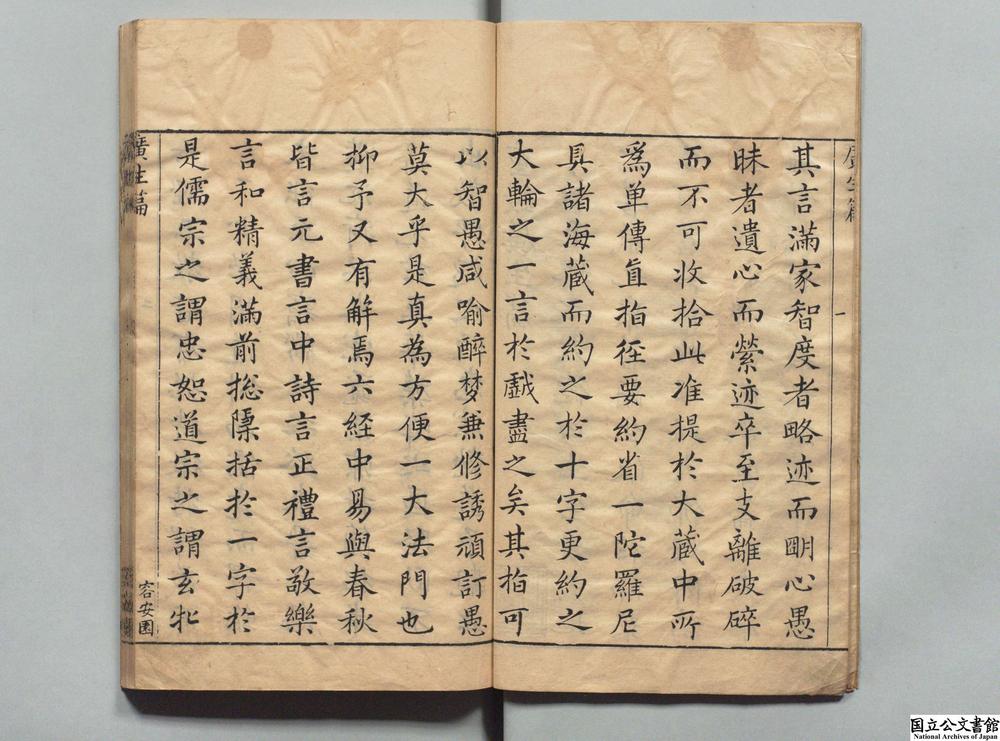 其言滿家智度者略迹而明心愚
昧者遺心而縈迹卒至支離破碎
而不可收拾此准提於大藏中所
爲单傳直指徑要約省一陀羅尼
具諸海藏而約之於十字更約之
大輪之一言於戲盡之矣其指可
以智愚咸喻醉梦兼修誘頑訂愚
莫大乎是真為方便一大法門也
抑予又有解焉六経中易與春秋
皆言元書言中詩言正禮言敬樂
言和精義滿前捴檃括於一字於
是儒宗之謂忠恕道宗之謂玄牝
廣生篇
一
廣生篇
容安園
国立公文書館
National Archives of Japan